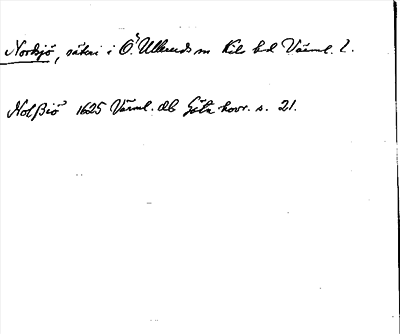 Nordsjö, säteri i Ö. Ullerud sn Kils hd Värml. l.
Nolßiö 1625 Värml. db Göta hovr. s. 21.